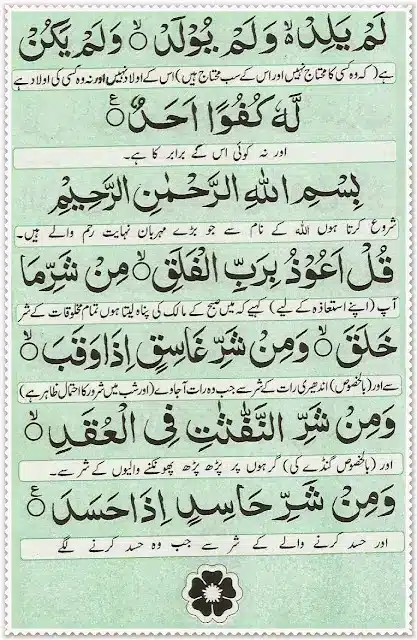 لَمۡ يَلِدۡ ۙ وَلَمۡ يُوۡلَدۡ ۙ وَلَمۡ يَكُنۡ
ہے (کہ وہ کسی کا محتاج نہیں اور اس کے سب محتاج ہیں) اس کے اولاد نہیں اور نہ وہ کسی کی اولاد ہے
لَّهٗ كُفُوًا اَحَدٌ
اور نہ کوئی اس کے برابر کا ہے۔
بِسۡمِ اللّٰهِ الرَّحۡمٰنِ الرَّحِيۡمِ
شروع کرتا ہوں اللہ کے نام سے جو بڑے مہربان نہایت رحم والے ہیں۔
قُلۡ اَعُوۡذُ بِرَبِّ الۡفَلَقِ ۙ مِنۡ شَرِّ مَا
آپ (اپنے استعاذہ کے لیے) کہیے کہ میں صبح کے مالک کی پناہ لیتا ہوں تمام مخلوقات کے شر
خَلَقَ ۙ وَمِنۡ شَرِّ غَاسِقٍ اِذَا وَقَبَ ۙ
سے اور (بالخصوص) اندھیری رات کے شر سے جب وہ رات آجاوے (اور شب میں شرور کا احتمال ظاہر ہے)
وَمِنۡ شَرِّ النَّفّٰثٰتِ فِى الۡعُقَدِ ۙ
اور (بالخصوص گنڈے کی) گرہوں پر پڑھ پڑھ پھونکنے والیوں کے شر سے۔
وَمِنۡ شَرِّ حَاسِدٍ اِذَا حَسَدَ
اور حسد کرنے والے کے شر سے جب وہ حسد کرنے لگے